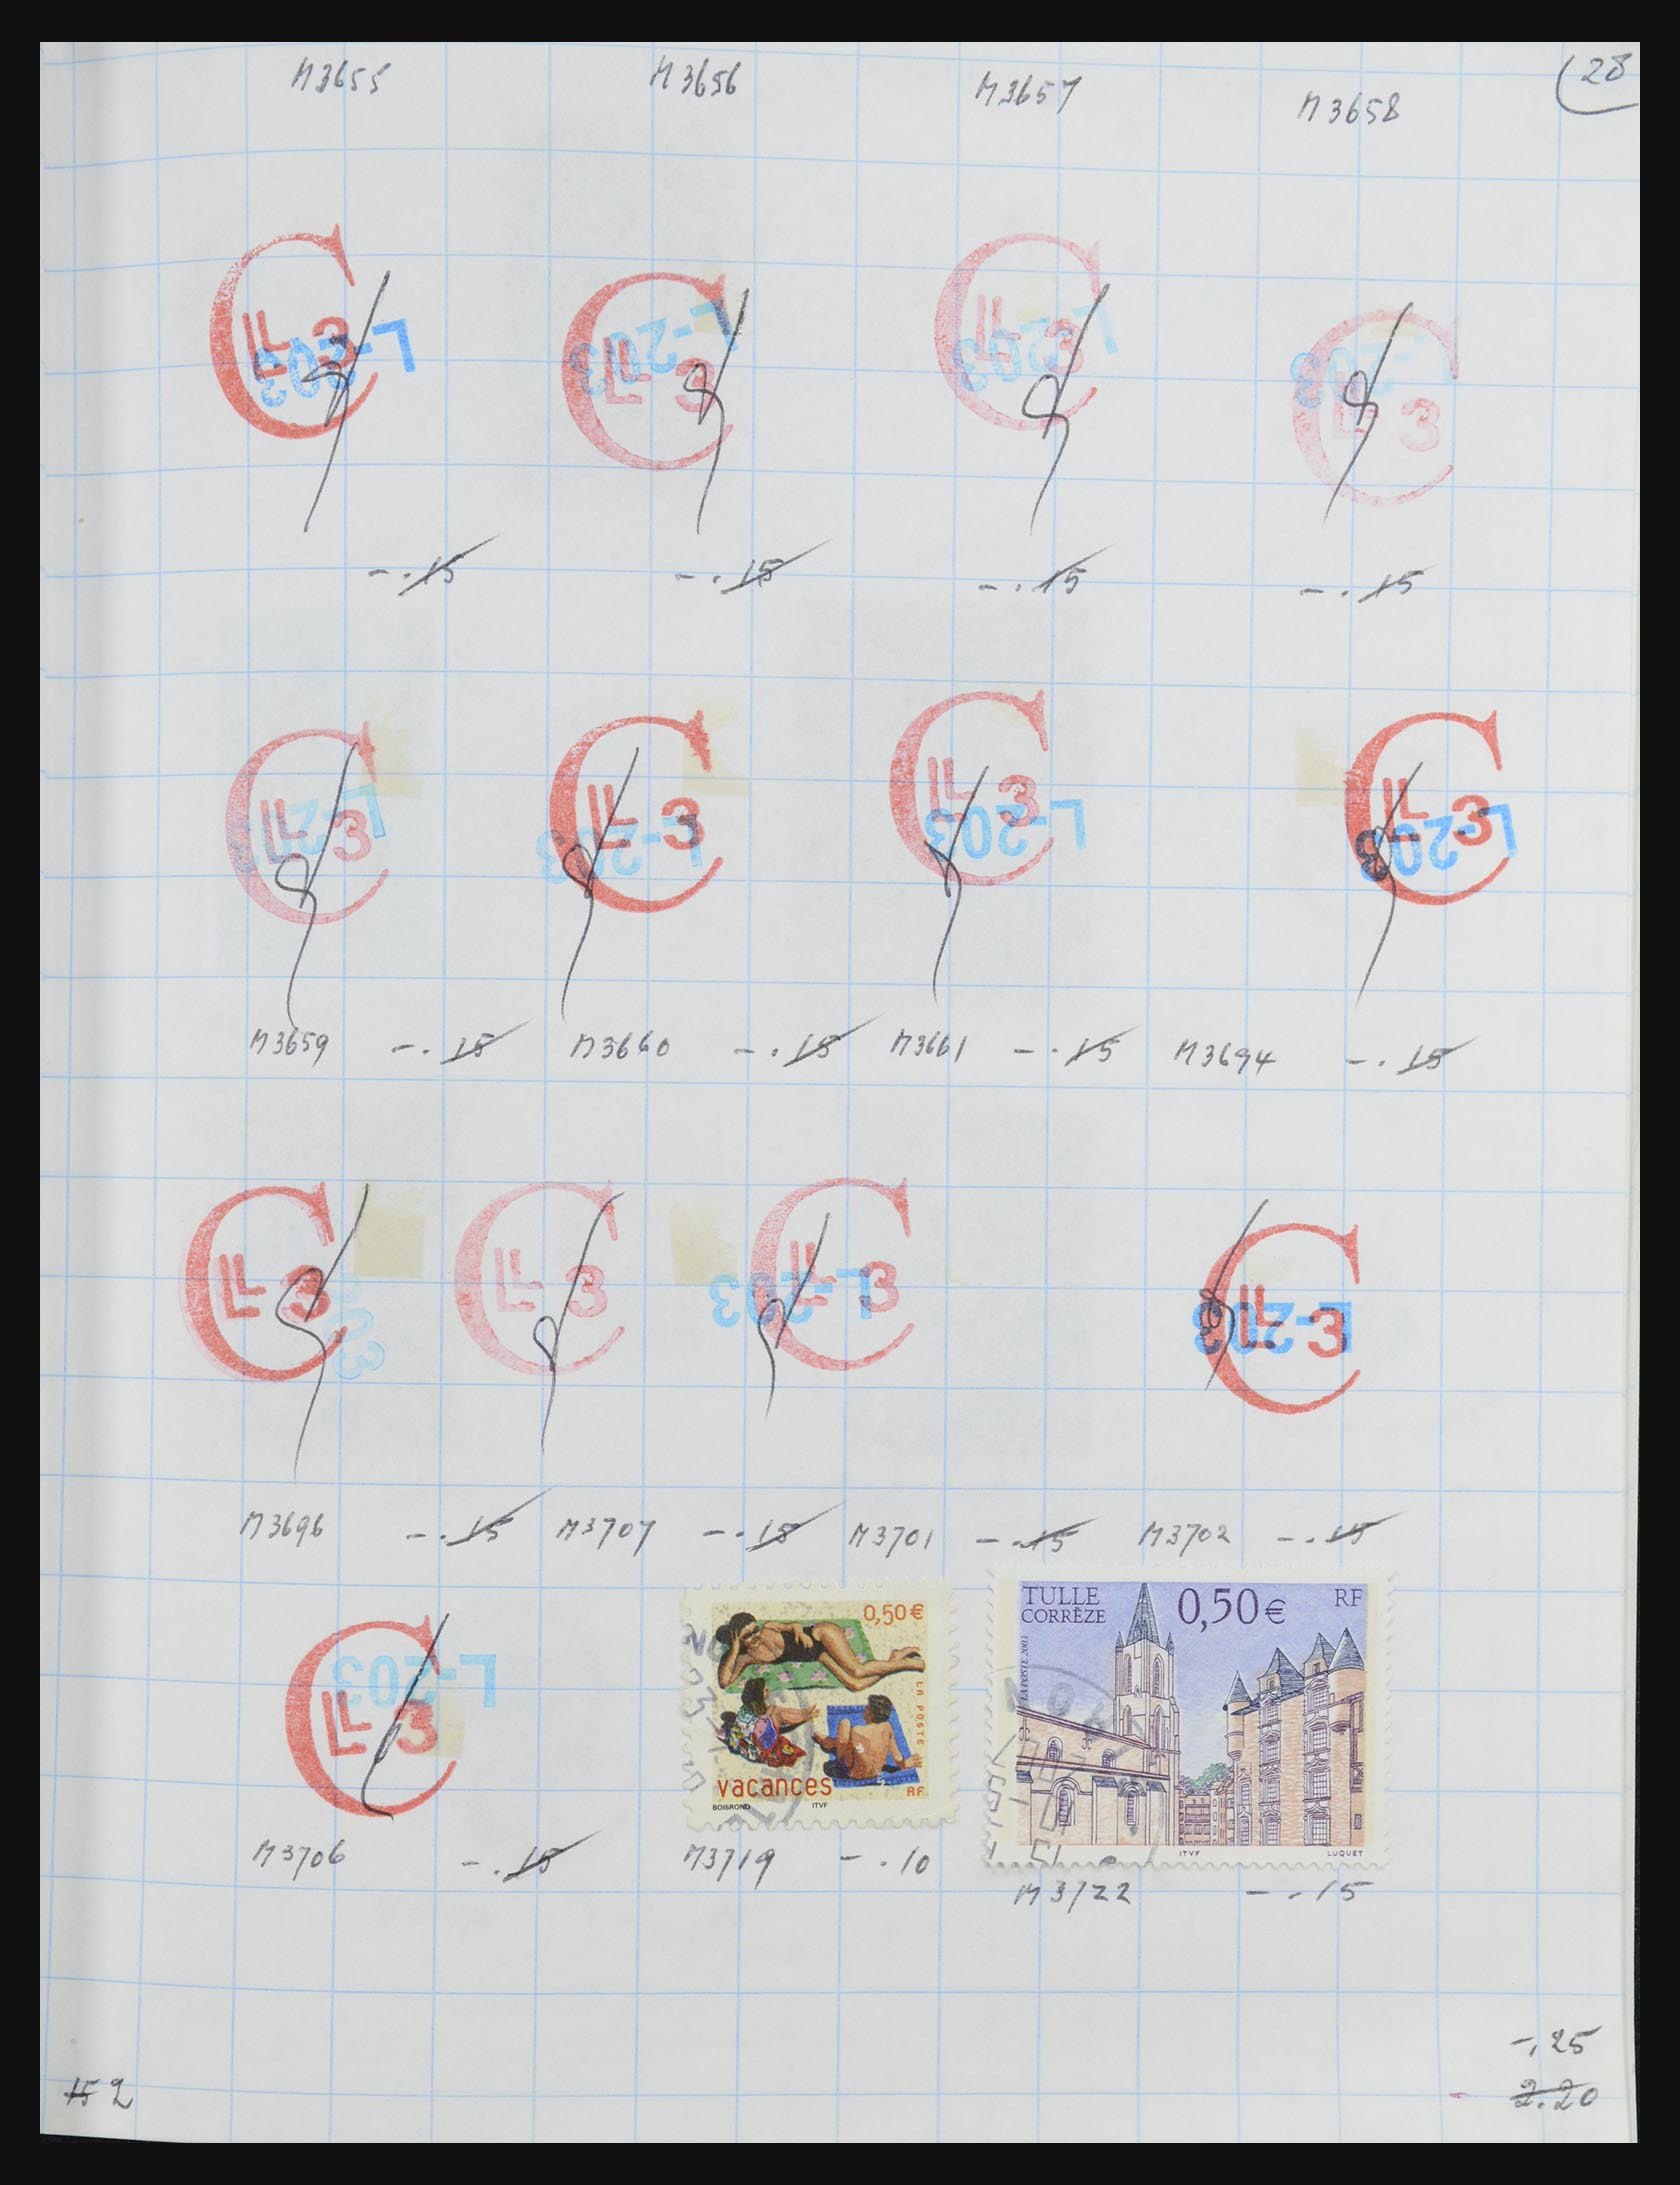 M3655 M3656 M3657 M3658 28
C LL 3 L-203
C LL 3 L-203
C LL 3 L-203
C LL 3 L-203
-.15 -.15 -.15 -.15
C LL 3 L-203
C LL 3 L-203
C LL 3 L-203
C LL 3 L-203
M3659 -.15 M3660 -.15 M3661 -.15 M3694 -.15
C LL 3 203
C LL 3
C LL 3 L-203
C LL 3 L-203
M3696 -.15 M3707 -.15 M3701 -.15 M3702 -.15
C LL 3 L-203
0,50€
LA POSTE
vacances
RF
BOISROND ITVF
TULLE
CORRÈZE
0,50€
RF
LA POSTE 2003
ITVF LUQUET
M3706 -.15 M3719 -.10
M3722 -.15
-.25
15 2 2.20